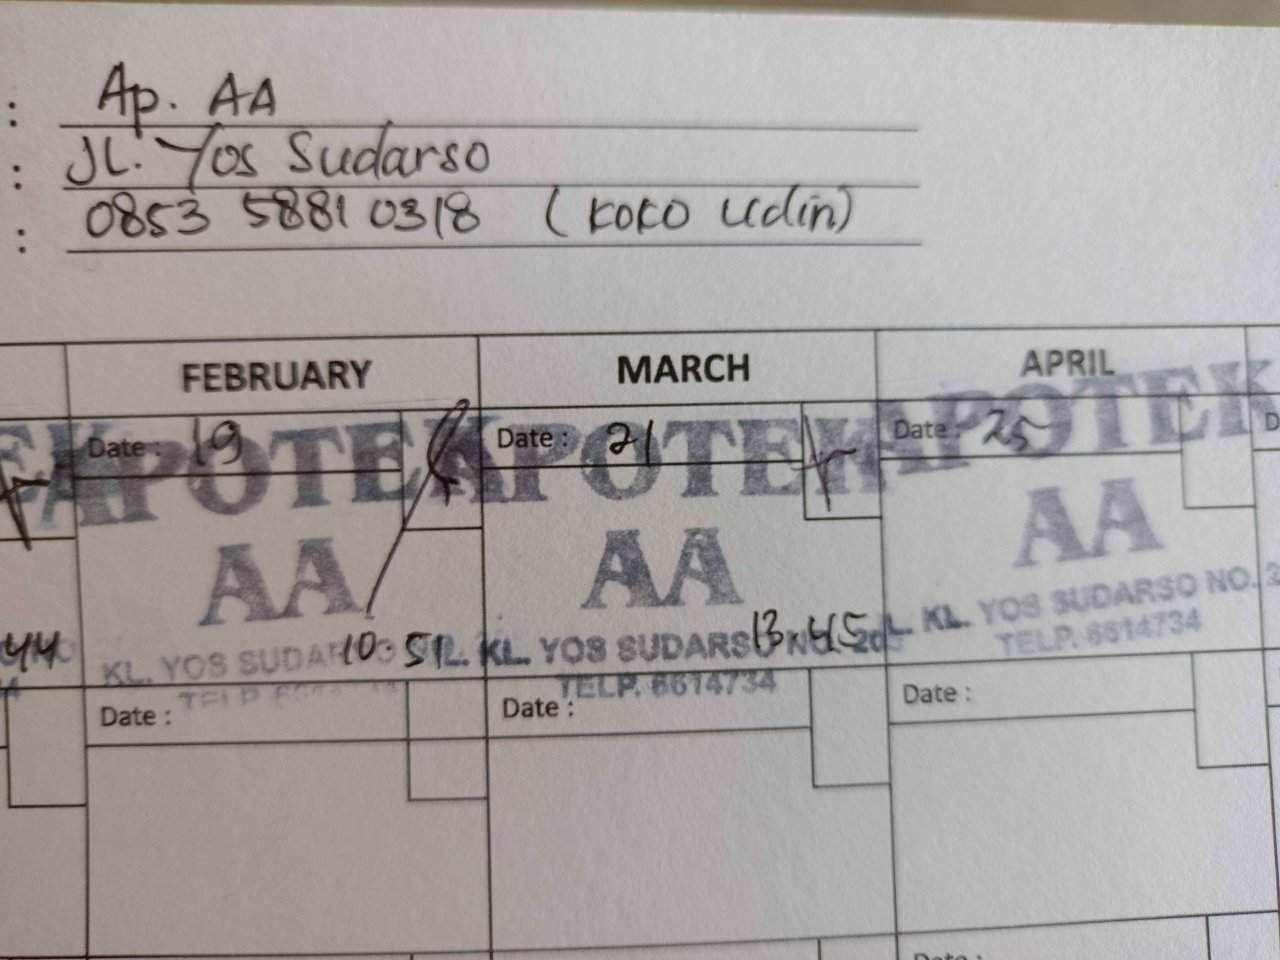 : Ap. AA
: JL. Yos Sudarso
: 0853 5881 0318 (Koko Udin)
FEBRUARY MARCH APRIL
Date : 19 Date : 21 Date : 25
APOTEK APOTEK APOTEK
AA AA AA
44 KL. YOS SUDARSO 10.51 JL. KL. YOS SUDARSO NO. 13.45 JL. KL. YOS SUDARSO NO.
TELP. TELP. 6614734 TELP. 6614734
Date : Date : Date :
Date :